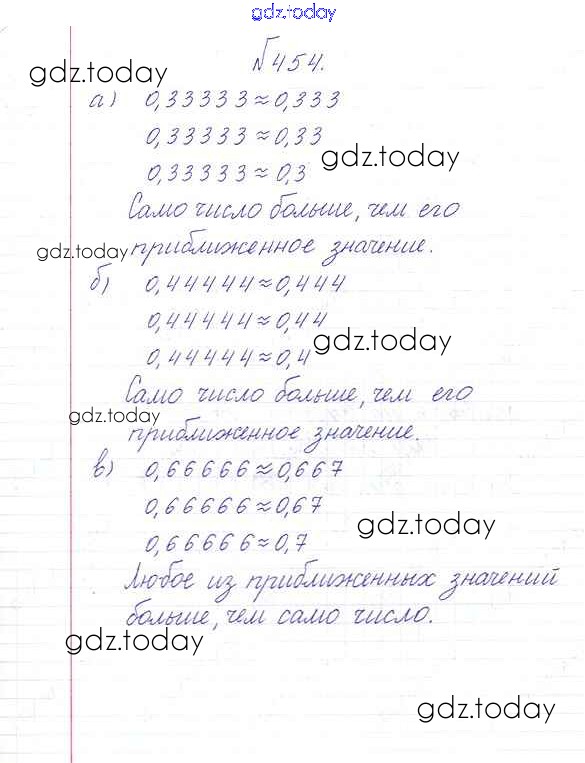 gdz.today
№454.
gdz.today
а) 0,33333≈0,333
0,33333≈0,33
gdz.today
0,33333≈0,3
Само число больше, чем его
gdz.today
приближенное значение.
б) 0,44444≈0,444
0,44444≈0,44
gdz.today
0,44444≈0,4
Само число больше, чем его
gdz.today
приближенное значение.
в) 0,66666≈0,667
0,66666≈0,67
gdz.today
0,66666≈0,7
Любое из приближенных значений
больше, чем само число.
gdz.today
gdz.today